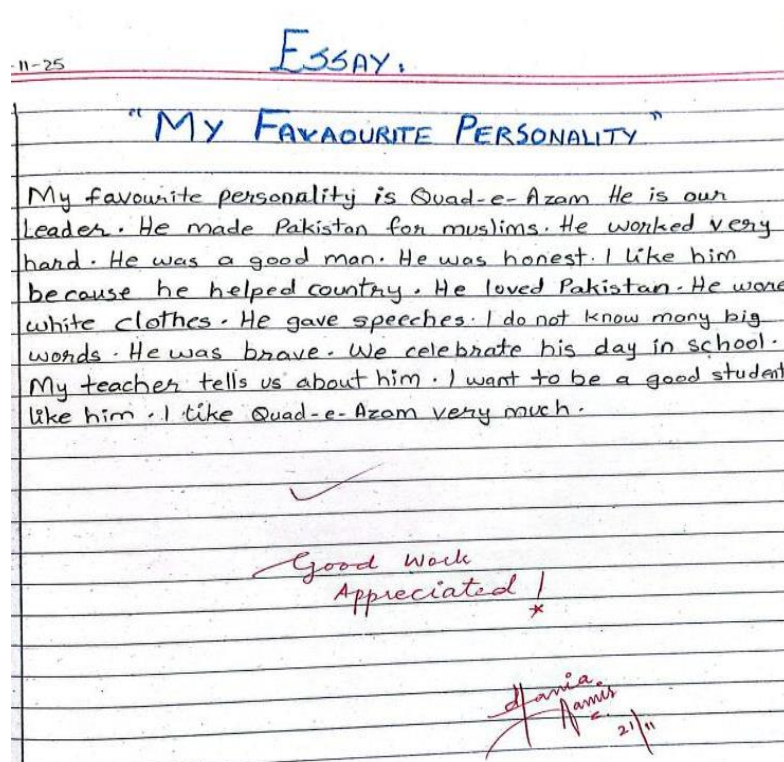 -11-25
ESSAY.
"MY FAVAOURITE PERSONALITY"
My favourite personality is Quad-e-Azam He is our
Leader. He made Pakistan for muslims. He worked very
hard. He was a good man. He was honest. I like him
because he helped country. He loved Pakistan. He wore
white clothes. He gave speeches. I do not know many big
words. He was brave. We celebrate his day in school.
My teacher tells us about him. I want to be a good student
like him. I like Quad-e-Azam very much.
Good Work
Appreciated!
Hania
21/11